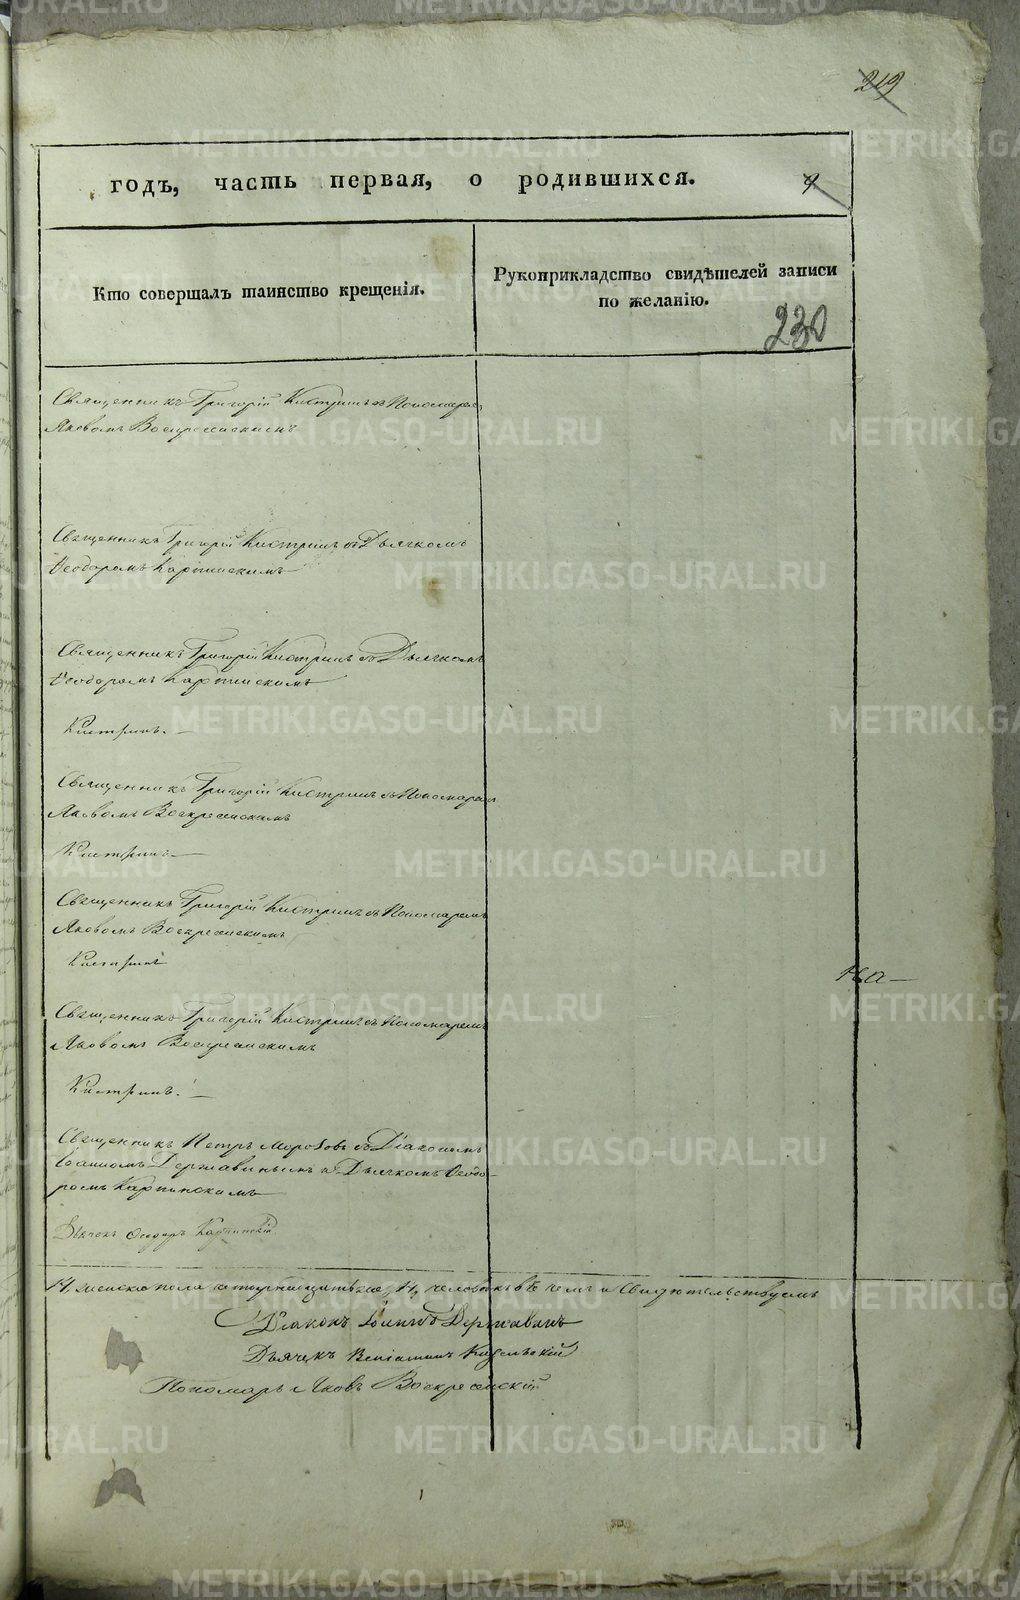 219
годъ, часть первая, о родившихся.
9
Кто совершалъ таинство крещенія.
Рукоприкладство свидѣтелей записи
по желанію.
230
Священникъ Григорій Кистринъ съ Пономаремъ
Яковомъ Воскресенскимъ
Священникъ Григорій Кистринъ съ Дьячкомъ
Ѳеодоромъ Карпинскимъ
Священникъ Григорій Кистринъ съ Дьячкомъ
Ѳеодоромъ Карпинскимъ
Кистринъ.
Священникъ Григорій Кистринъ съ Пономаремъ
Яковомъ Воскресенскимъ
Кистринъ
Священникъ Григорій Кистринъ съ Пономаремъ
Яковомъ Воскресенскимъ
Кистринъ
Священникъ Григорій Кистринъ съ Пономаремъ
Яковомъ Воскресенскимъ
Кистринъ.
Священникъ Петръ Морозовъ съ Діакономъ
Іоанномъ Державинымъ и Дьячкомъ Ѳеодо-
ромъ Карпинскимъ
Дьячекъ Ѳеодоръ Карпинскій
женска пола человѣкъ въ чемъ и свидѣтельствуемъ
Діаконъ Іоаннъ Державинъ
Дьячекъ Веніаминъ
Пономарь Яковъ Воскресенскій
METRIKI.GASO-URAL.RU